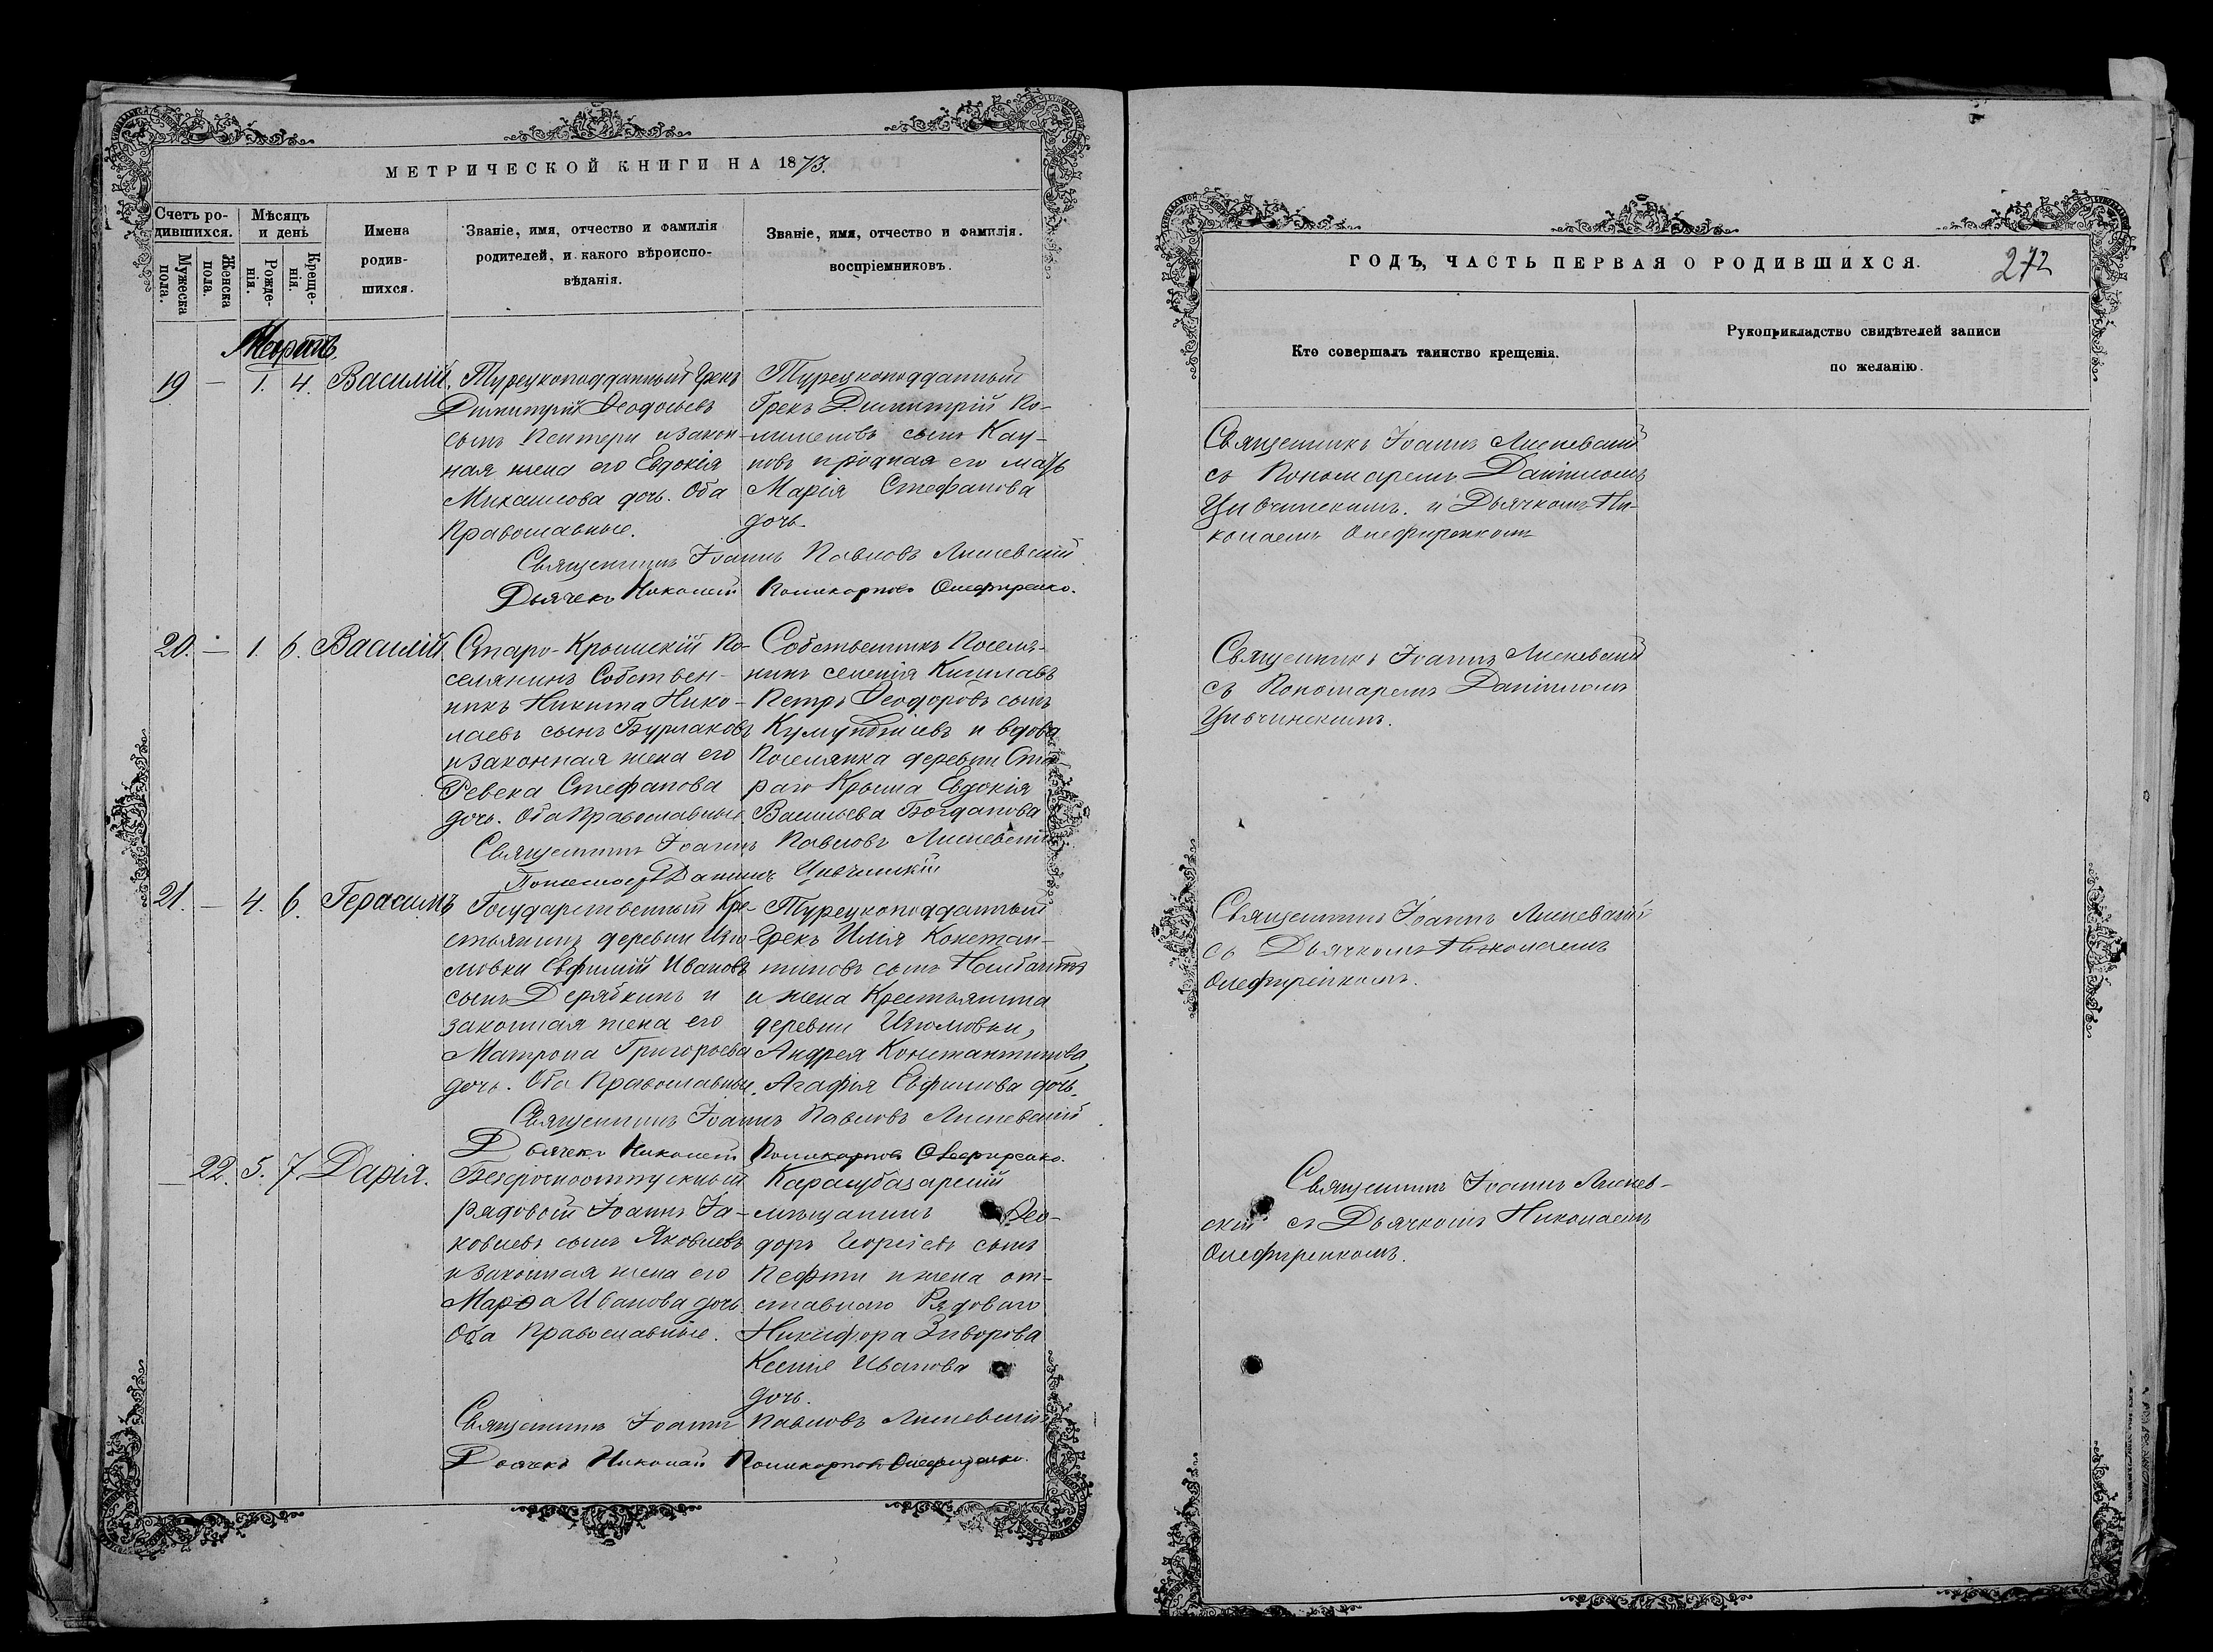 МЕТРИЧЕСКОЙ КНИГИ НА 1873.
Счетъ ро-
дившихся.
Мужеска
пола.
Женска
пола.
Мѣсяцъ
и день
Рожде-
нія.
Креще-
нія.
Имена
родив-
шихся.
Званіе, имя, отчество и фамилія
родителей, и какого вѣроиспо-
вѣданія.
Званіе, имя, отчество и фамилія.
воспріемниковъ.
Мартъ.
19 — 1. 4. Василій.
Турецкоподданный Грекъ
Димитрій Ѳеодосьевъ
сынъ Пентери и закон-
ная жена его Евдокія
Михаилова дочь. Оба
Православные.
Турецкоподданный
Грекъ Димитрій По-
лименовъ сынъ
и родная его мать
Марія Стефанова
дочь.
Священникъ Іоаннъ Павловъ
Дьячекъ Николай Поликарповъ Олефиренко.
20. — 1. 6. Василій
Старо-Крымскій По-
селянинъ Собствен-
никъ Никита Нико-
лаевъ сынъ Бурлаковъ
и законная жена его
Ревека Стефанова
дочь. Оба Православные.
Собственникъ Поселя-
нинъ селенія Кишлавъ
Петръ Ѳеодоровъ сынъ
и вдова
Поселянка деревни Ста-
раго Крыма Евдокія
Васильева Богданова
Священникъ Іоаннъ Павловъ
Пономарь Даніилъ Цивчинскій
21. — 4. 6. Герасимъ
Государственный Кре-
стьянинъ деревни Изю-
мовки Евфимій Ивановъ
сынъ Дерябкинъ и
законная жена его
Матрона Григорьева
дочь. Оба Православные.
Турецкоподданный
Грекъ Илія Констан-
тиновъ сынъ
и жена Крестьянина
деревни Изюмовки,
Андрея Константинова,
Агафія Евфимова дочь.
Священникъ Іоаннъ Павловъ
Дьячекъ Николай Поликарповъ Олефиренко.
— 22. 5. 7. Дарія.
Безсрочноотпускный
рядовой Іоаннъ Іа-
ковлевъ сынъ Яковлевъ
и законная жена его
Марѳа Иванова дочь
Оба Православные.
Карасубазарскій
мѣщанинъ Ѳео-
доръ Георгіевъ сынъ
Пефти и жена от-
ставного Рядового
Никифора Зиворова
Ксенія Иванова
дочь.
Священникъ Іоаннъ Павловъ
Дьячекъ Николай Поликарповъ Олефиренко.
ГОДЪ, ЧАСТЬ ПЕРВАЯ О РОДИВШИХСЯ.
272
Кто совершалъ таинство крещенія.
Рукоприкладство свидѣтелей записи
по желанію.
Священникъ Іоаннъ
съ Пономаремъ Даніиломъ
Цивчинскимъ. и Дьячкомъ Ни-
колаемъ Олефиренкомъ
Священникъ Іоаннъ
съ Пономаремъ Даніиломъ
Цивчинскимъ.
Священникъ Іоаннъ
съ Дьячкомъ Николаемъ
Олефиренкомъ.
Священникъ Іоаннъ
съ Дьячкомъ Николаемъ
Олефиренкомъ.